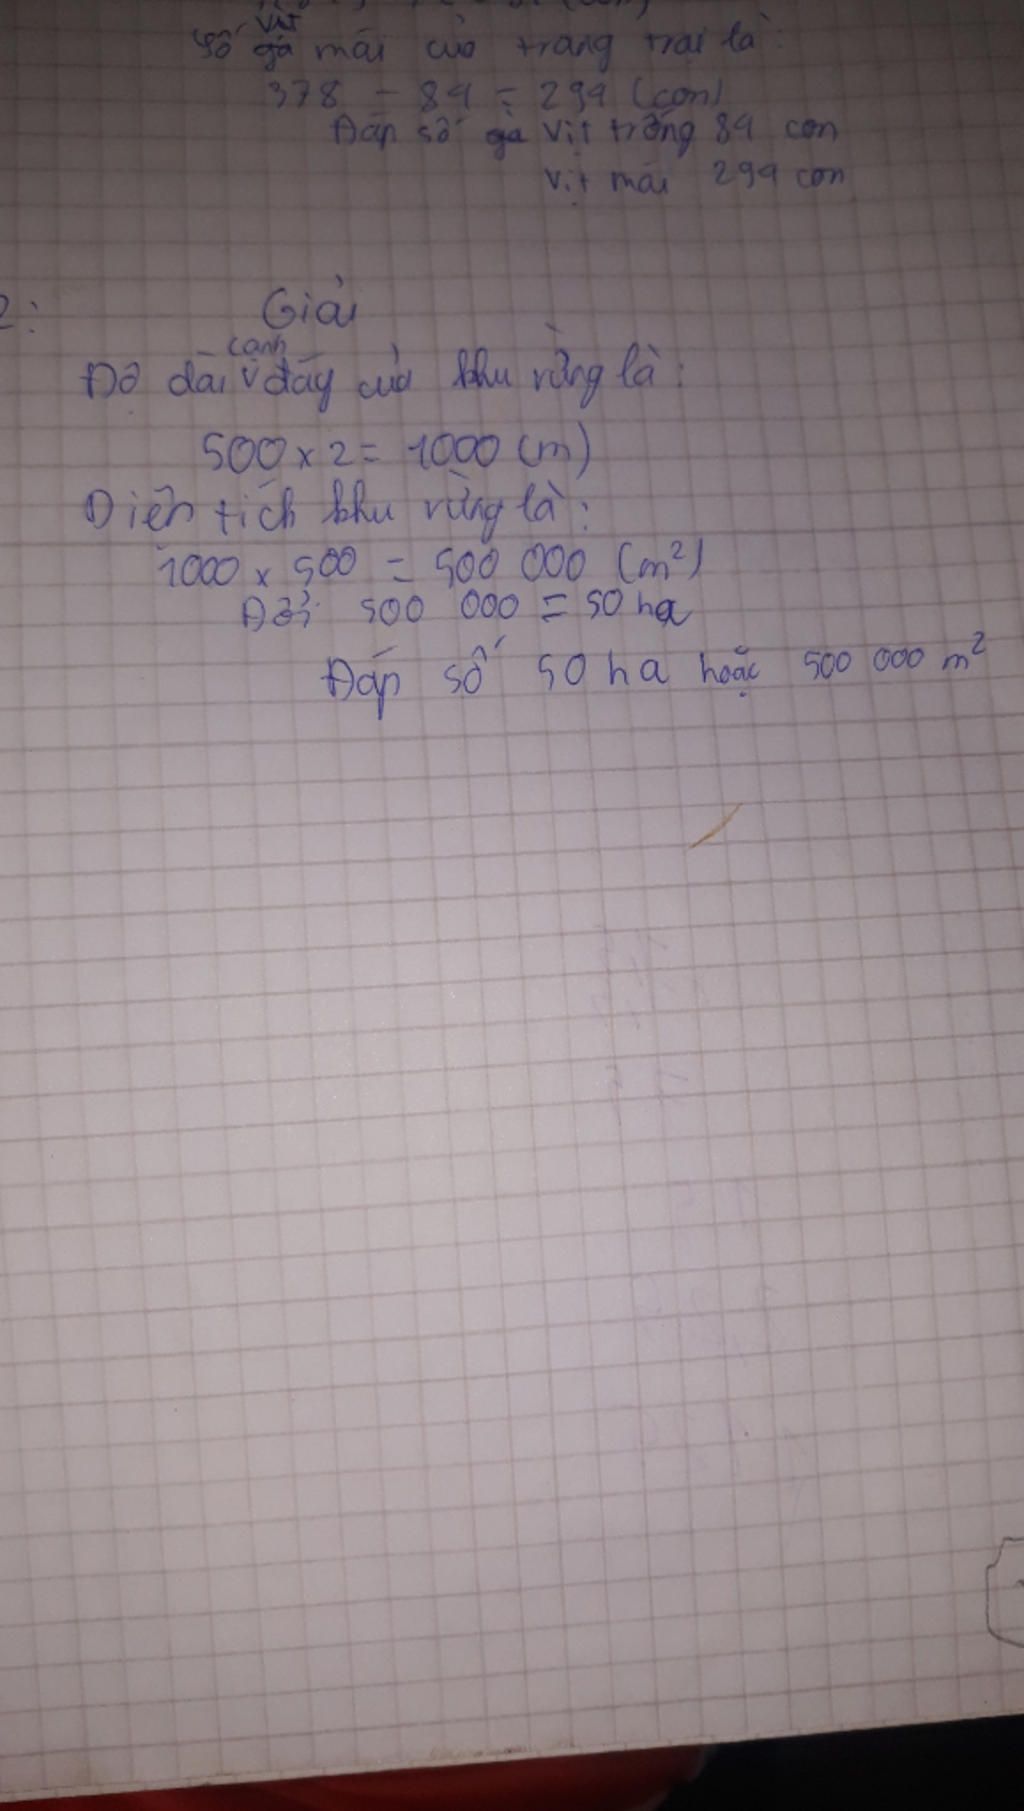 Số vịt mái của trang trại là:
378 - 84 = 294 (con)
Đáp số vịt trống 84 con
vịt mái 294 con
2:
Giải
Độ dài cạnh đáy của khu rừng là:
500 x 2 = 1000 (m)
Diện tích khu rừng là:
1000 x 500 = 500 000 (m²)
Đổi: 500 000 = 50 ha
Đáp số 50 ha hoặc 500 000 m²